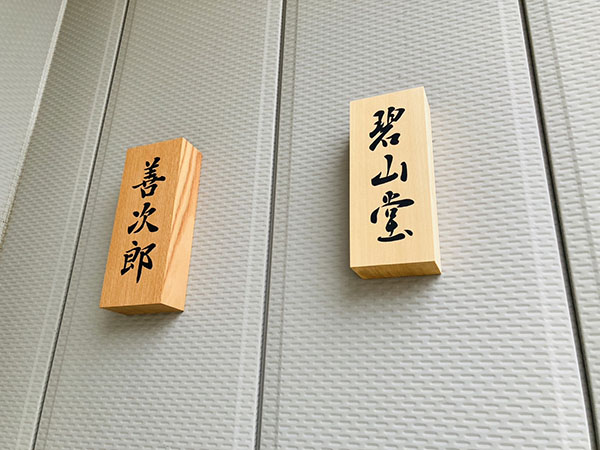 善次郎
碧山堂